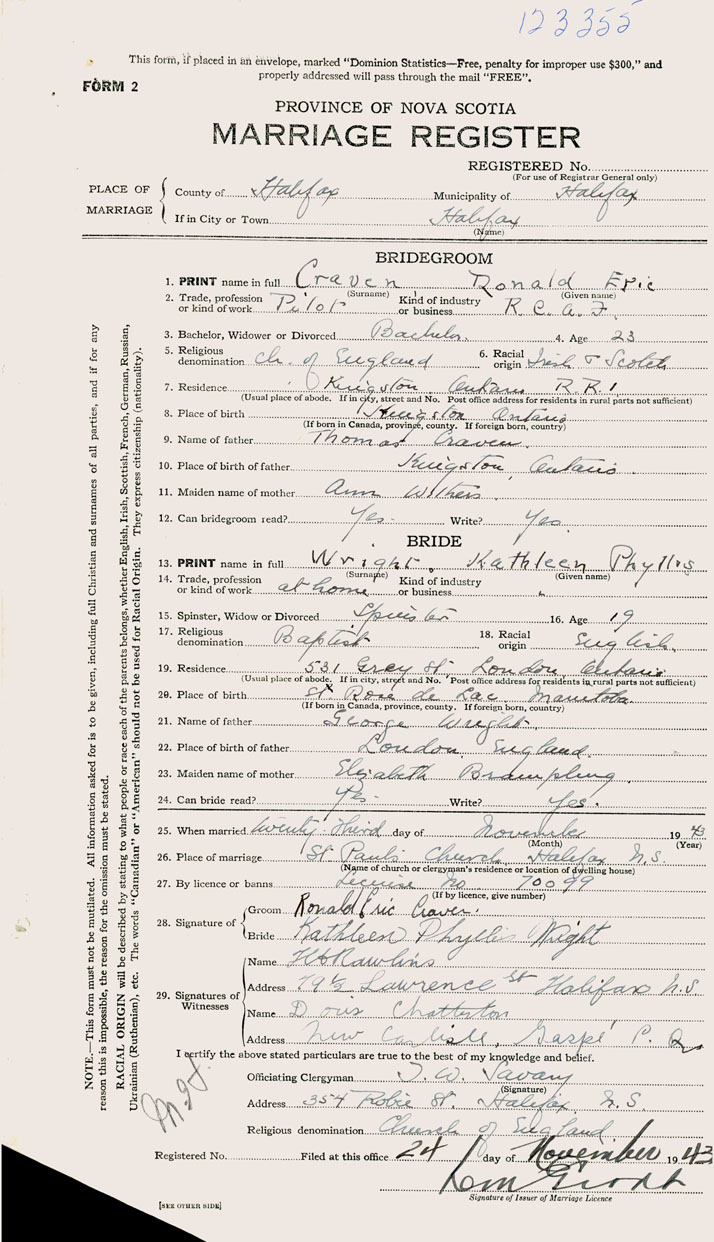 123355
This form, if placed in an envelope, marked "Dominion Statistics—Free, penalty for improper use $300," and
properly addressed will pass through the mail "FREE".
FORM 2
PROVINCE OF NOVA SCOTIA
MARRIAGE REGISTER
REGISTERED No.
(For use of Registrar General only)
PLACE OF MARRIAGE
County of Halifax Municipality of Halifax
If in City or Town Halifax
(Name)
BRIDEGROOM
1. PRINT name in full Craven Ronald Eric
(Surname) (Given name)
2. Trade, profession or kind of work Pilot Kind of industry or business R.C.A.F.
3. Bachelor, Widower or Divorced Bachelor. 4. Age 23
5. Religious denomination Ch. of England 6. Racial origin Irish & Scotch
7. Residence Kingston Ontario R.R.1.
(Usual place of abode. If in city, street and No. Post office address for residents in rural parts not sufficient)
8. Place of birth Kingston Ontario
(If born in Canada, province, county. If foreign born, country)
9. Name of father Thomas Craven.
10. Place of birth of father Kingston, Ontario.
11. Maiden name of mother Ann Withers.
12. Can bridegroom read? Yes. Write? Yes.
BRIDE
13. PRINT name in full Wright. Kathleen Phyllis
(Surname) (Given name)
14. Trade, profession or kind of work at home Kind of industry or business
15. Spinster, Widow or Divorced Spinster 16. Age 19
17. Religious denomination Baptist 18. Racial origin English.
19. Residence 531 Grey St. London, Ontario
(Usual place of abode. If in city, street and No. Post office address for residents in rural parts not sufficient)
20. Place of birth St. Rose de Lac Manitoba.
(If born in Canada, province, county. If foreign born, country)
21. Name of father George Wright.
22. Place of birth of father London, England.
23. Maiden name of mother Elizabeth Brampling.
24. Can bride read? Yes. Write? Yes.
25. When married twenty-third day of November 1943
(Month) (Year)
26. Place of marriage St. Paul's Church, Halifax N.S.
(Name of church or clergyman's residence or location of dwelling house)
27. By licence or banns License No. 70099
(If by licence, give number)
28. Signature of
Groom Ronald Eric Craven.
Bride Kathleen Phyllis Wright
29. Signatures of Witnesses
Name Rawlins
Address 79½ Lawrence St Halifax N.S
Name Doris Chatterton
Address New Carlisle, Gaspé P.Q.
I certify the above stated particulars are true to the best of my knowledge and belief.
Officiating Clergyman T. W. Savary
(Signature)
Address 354 Robie St. Halifax N.S.
Religious denomination Church of England
Registered No. Filed at this office 24 day of November 1943
Signature of Issuer of Marriage Licence
[SEE OTHER SIDE]
NOTE.—This form must not be mutilated. All information asked for is to be given, including full Christian and surnames of all parties, and if for any
reason this is impossible, the reason for the omission must be stated.
RACIAL ORIGIN will be described by stating to what people or race each of the parents belongs, whether English, Irish, Scottish, French, German, Russian,
Ukrainian (Ruthenian), etc. The words "Canadian" or "American" should not be used for Racial Origin. They express citizenship (nationality).